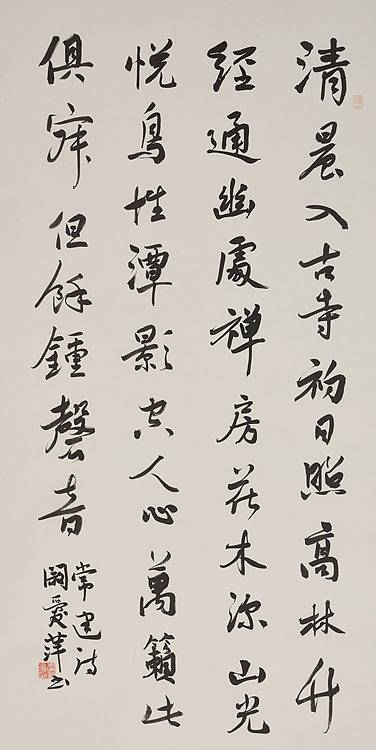 清晨入古寺初日照高林竹
經通幽處禅房花木深山光
悦鳥性潭影空人心萬籟此
俱寂但餘鍾磬音
常建诗
愛萍书